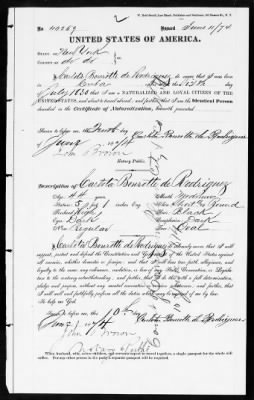 No 40259 Issued June 11/74
UNITED STATES OF AMERICA.
STATE OF New York
COUNTY OF do do
I, Carlota Benrotte de Rodriguez, do swear that I was born
in Cuba on
July 1830 that I am a NATURALIZED AND LOYAL CITIZEN OF THE
UNITED STATES, and about to travel abroad; and further, that I am the Identical Person
described in the Certificate of Naturalization, herewith presented.
Sworn to before me, this Tenth day of
June 1874
Carlota Benrotte de Rodriguez
John A Brown
Notary Public.
Description of Carlota Benrotte de Rodriguez
Age: 44 years
Stature: 5
Forehead: High
Eyes: Dark
Nose: Regular
Mouth: Medium
Chin: Round
Hair: Black
Complexion: Dark
Face: Oval
I, Carlota Benrotte de Rodriguez do solemnly swear that I will
support, protect and defend the Constitution and Government of the United States against
all enemies, whether domestic or foreign; and that I will bear true faith, allegiance, and
loyalty to the same, any ordinance, resolution, or law of any State, Convention, or Legisla-
ture to the contrary notwithstanding; and further, that I do this with a full determination,
pledge and purpose, without any mental reservation or evasion whatsoever; and further, that
I will well and faithfully perform all the duties which may be required of me by law.
So help me God.
Sworn to before me, this 10th day
June 1874
Carlota Benrotte de Rodriguez
John A Brown
Notary Public
When husband, wife, minor children, and servants expect to travel together, a single passport for the whole will suffice.
For any other person in the party a separate passport will be required.